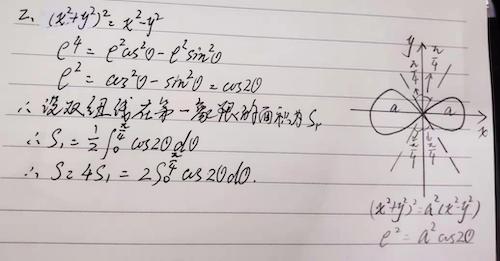 2. (x²+y²)²=x²-y²
ρ⁴=ρ²cos²θ-ρ²sin²θ
ρ²=cos²θ-sin²θ=cos2θ
∴设双纽线在第一象限的面积为S₁
∴S₁=½∫₀^(π/4) cos2θdθ
∴S=4S₁=2∫₀^(π/4) cos2θdθ.
y
π/4 π/4
a a
x
π/4 π/4
(x²+y²)²=a²(x²-y²)
ρ²=a²cos2θ